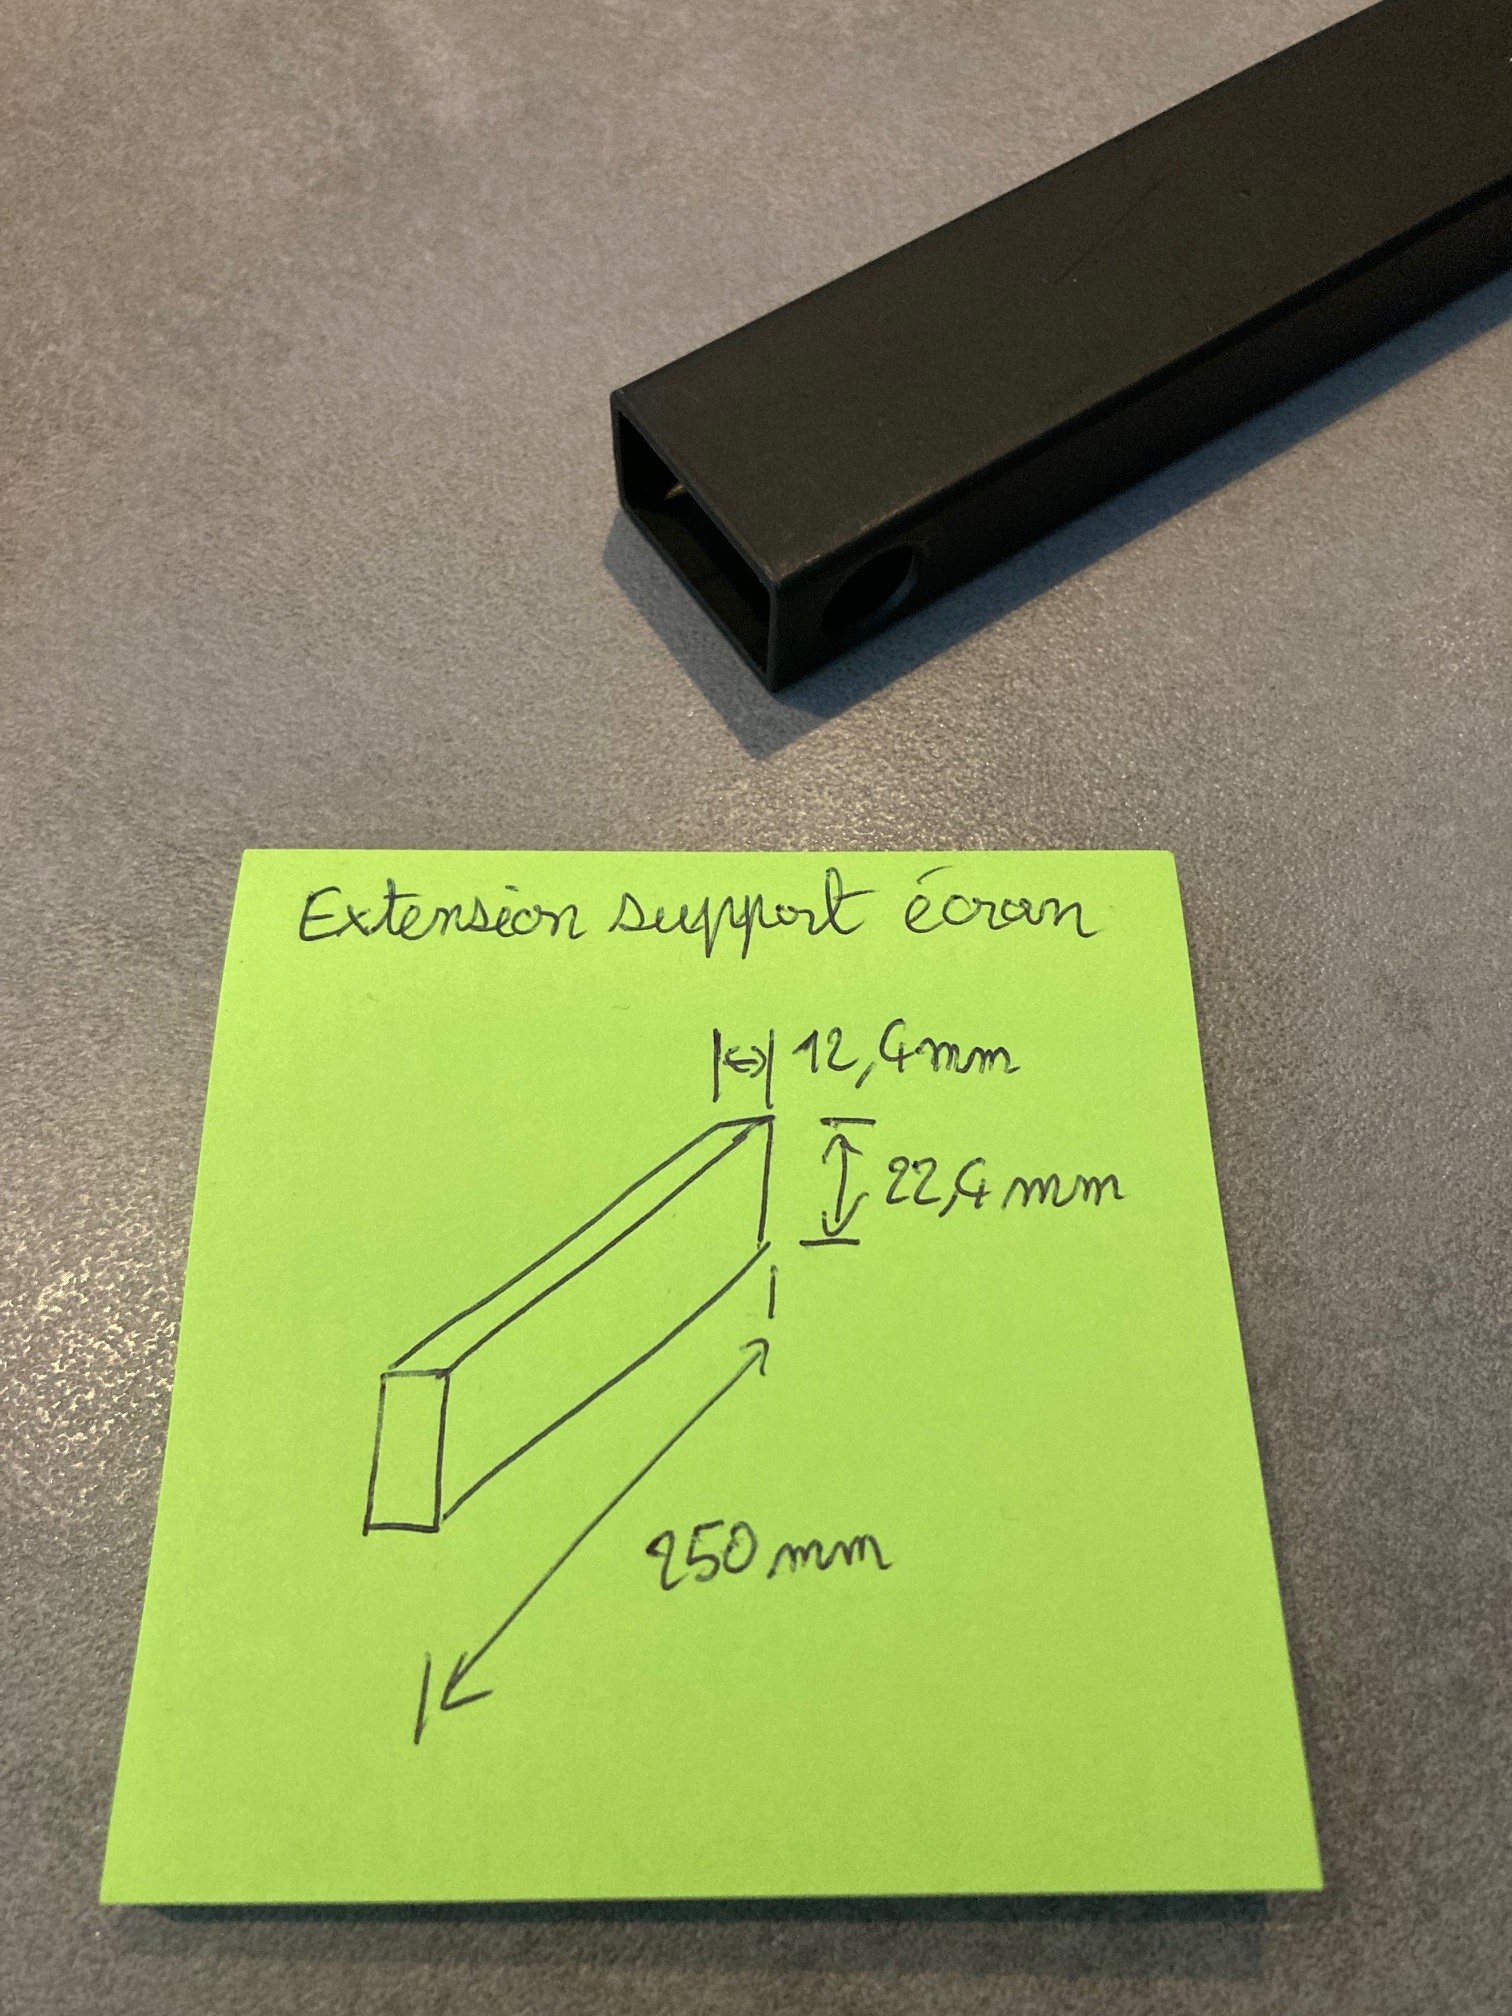 Extension support écran
12,4mm
22,4mm
250mm